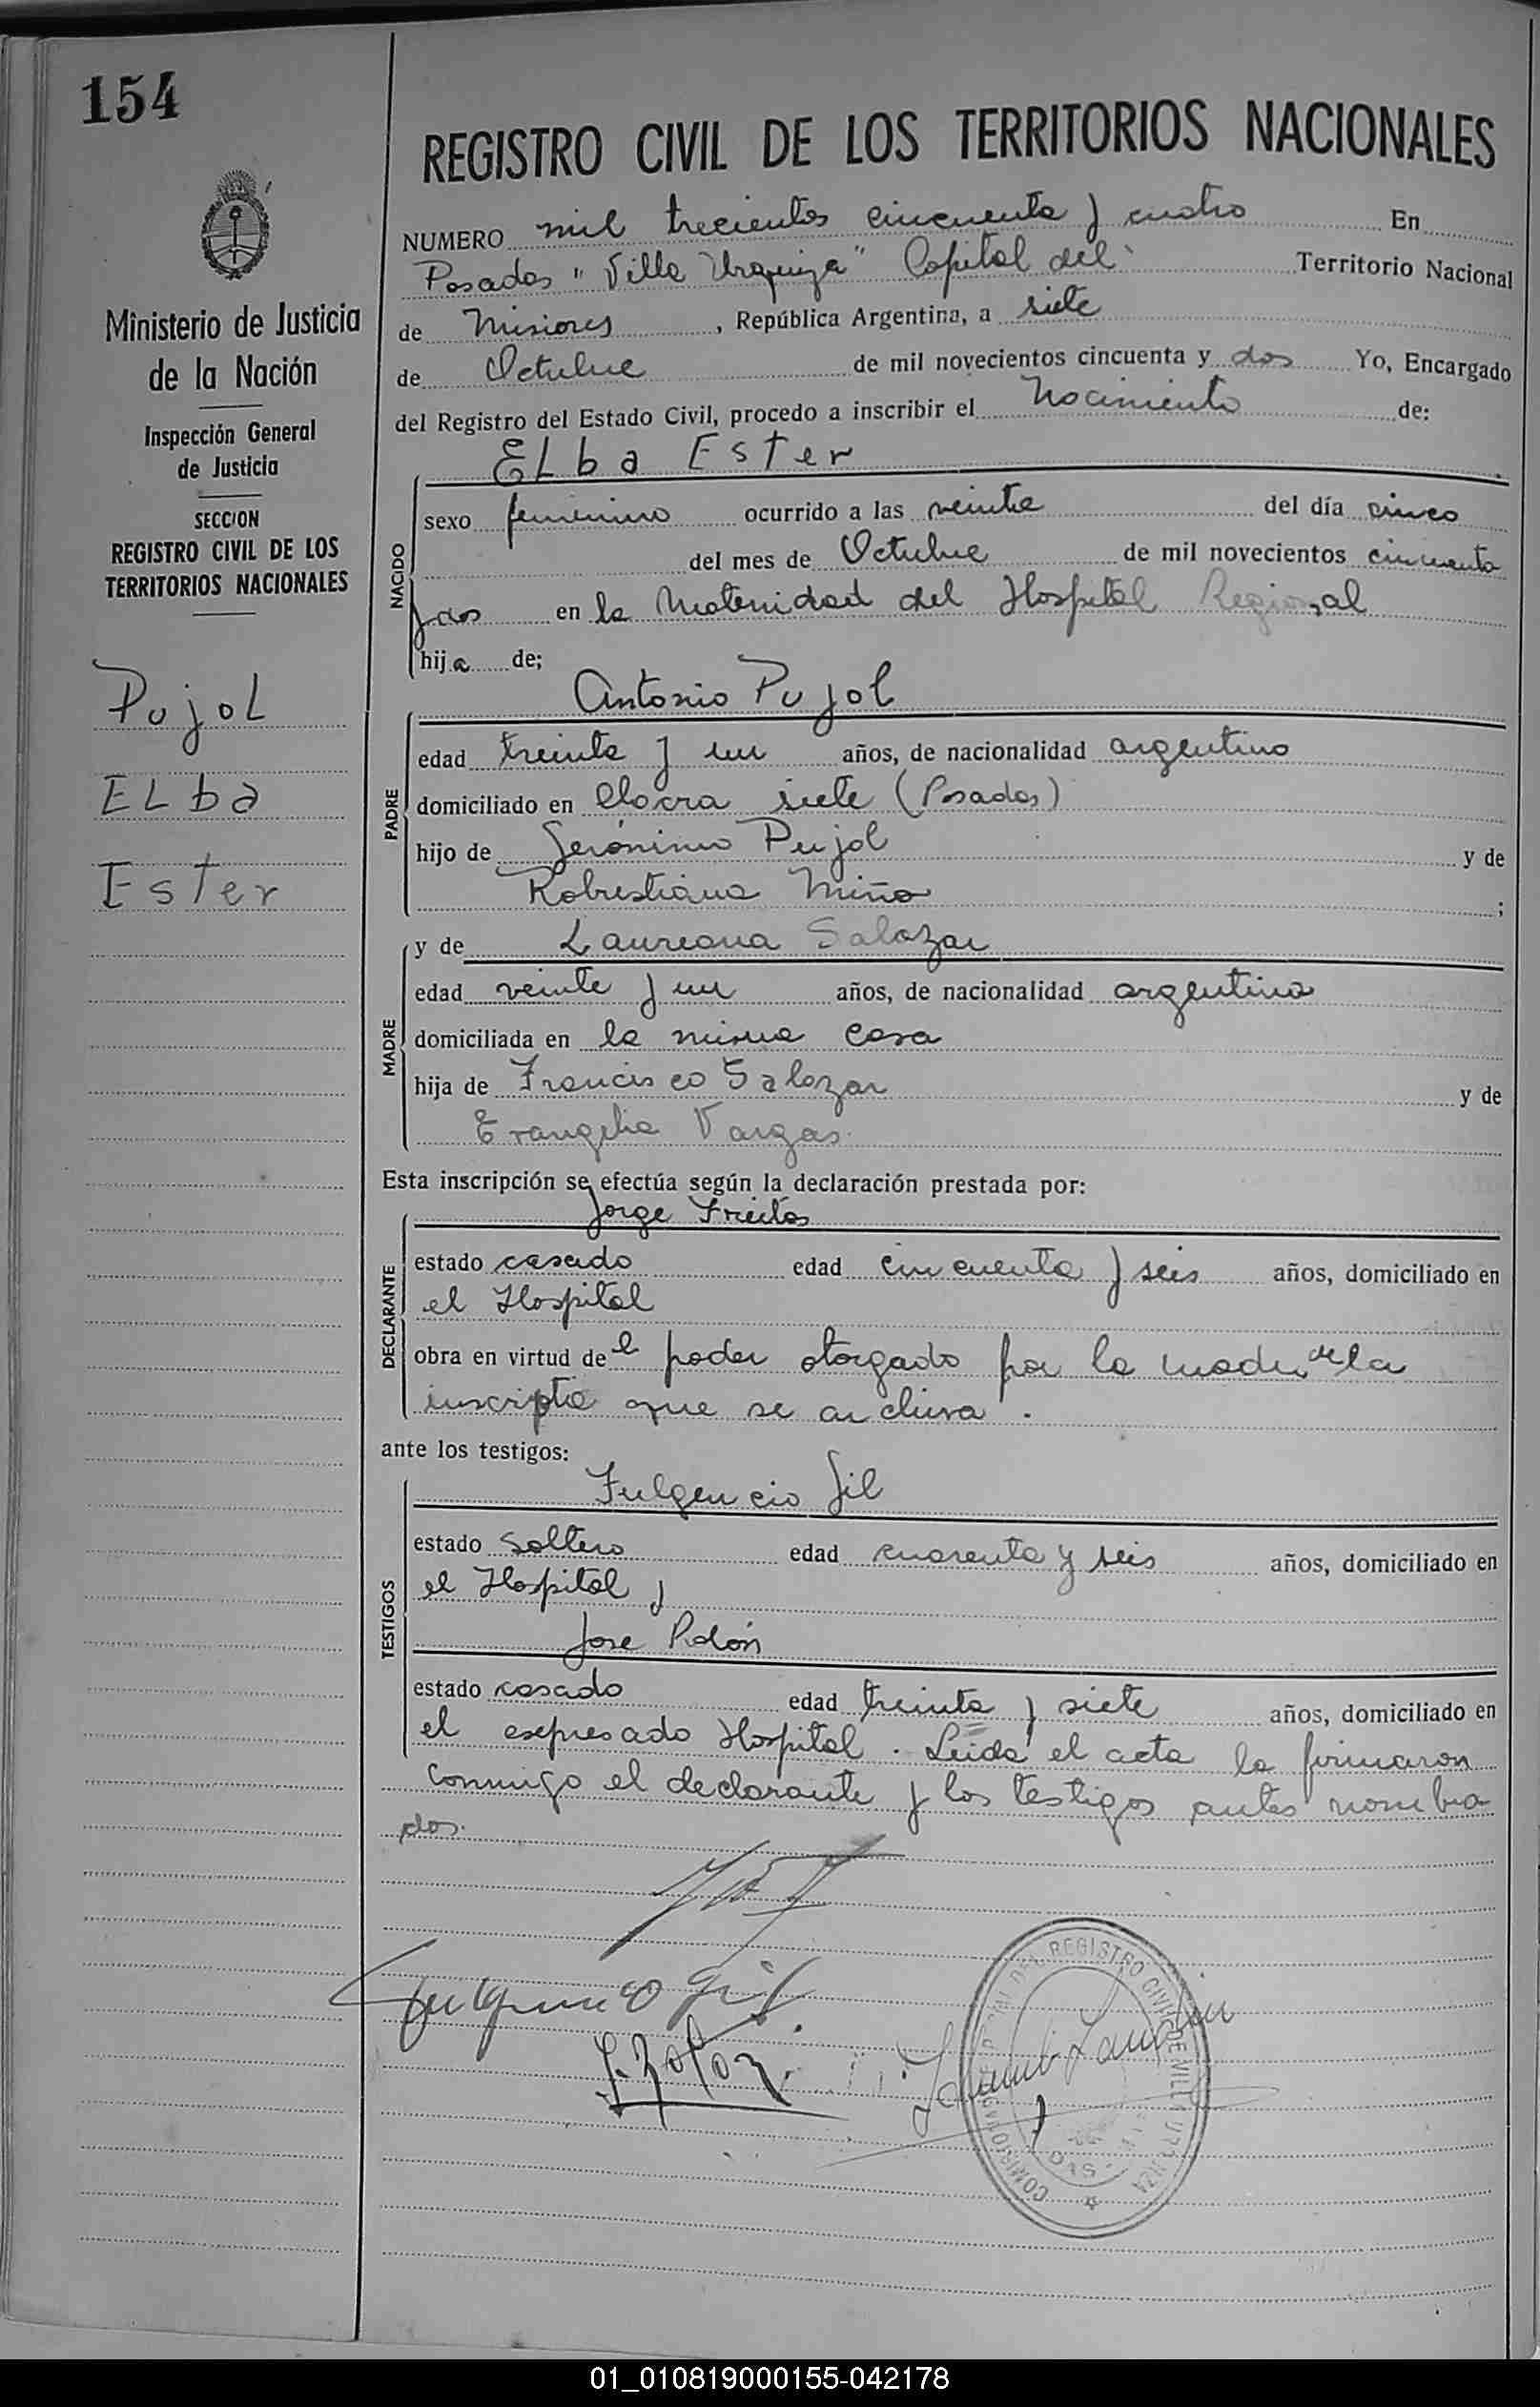 154
Ministerio de Justicia
de la Nación
Inspección General
de Justicia
SECCION
REGISTRO CIVIL DE LOS
TERRITORIOS NACIONALES
Pujol
ELba
Ester
REGISTRO CIVIL DE LOS TERRITORIOS NACIONALES
NUMERO mil trecientos cincuenta y cuatro En
Posadas "Villa Urquiza" Capital del Territorio Nacional
de Misiones, República Argentina, a siete
de Octubre de mil novecientos cincuenta y dos Yo, Encargado
del Registro del Estado Civil, procedo a inscribir el Nacimiento de:
ELba Ester
NACIDO
sexo femenino ocurrido a las veinte del día cinco
del mes de Octubre de mil novecientos cincuenta
y dos en la Maternidad del Hospital Regional
hija de;
Antonio Pujol
PADRE
edad treinta y un años, de nacionalidad argentino
domiciliado en Chacra siete (Posadas)
hijo de Jerónimo Pujol y de
Robustiana Miño;
y de Laureana Salazar
MADRE
edad veinte y un años, de nacionalidad argentina
domiciliada en la misma casa
hija de Francisco Salazar y de
Evangelia Vargas.
Esta inscripción se efectúa según la declaración prestada por:
Jorge Freitas
DECLARANTE
estado casado edad cincuenta y seis años, domiciliado en
el Hospital
obra en virtud del poder otorgado por la madre de la
inscripta que se archiva.
ante los testigos:
Fulgencio Gil
TESTIGOS
estado soltero edad cuarenta y seis años, domiciliado en
el Hospital y
Jose Rolón
estado casado edad treinta y siete años, domiciliado en
el expresado Hospital. Leida el acta la firmaron
conmigo el declarante y los testigos antes nombra
dos.
Fulgencio Gil
J. Rolon
REGISTRO CIVIL DE VILLA URQUIZA
01_010819000155-042178